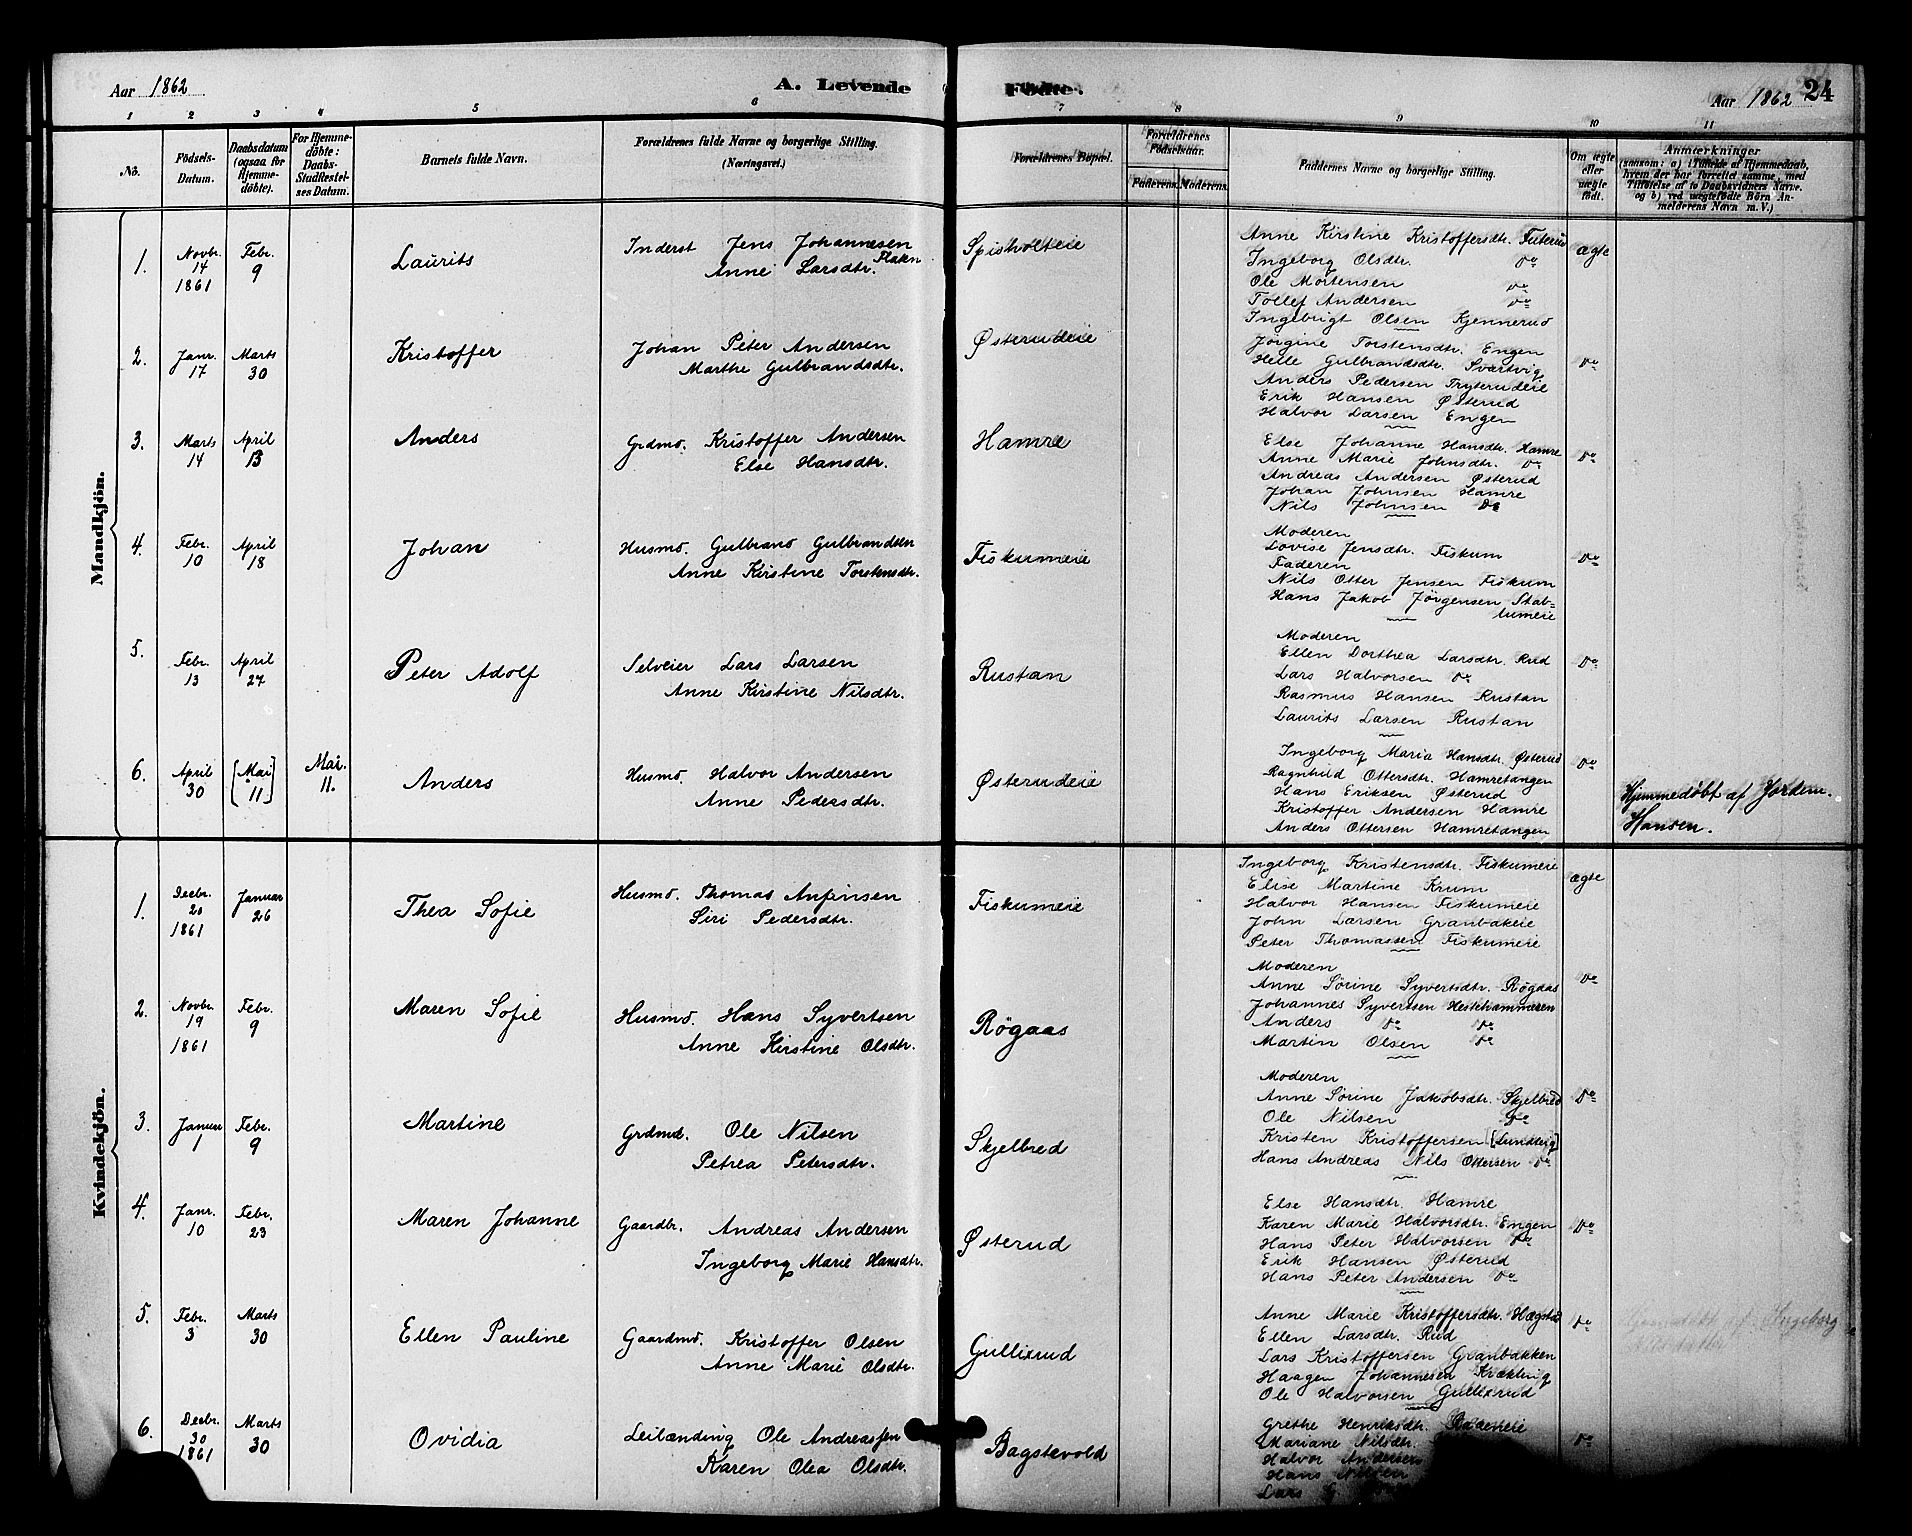 Aar 1862
A. Levende Fødte.
Aar 1862 24
1 2 3 4 5 6 7 8 9 10 11
No.
Fødsels-Datum.
Daabsdatum (ogsaa for Hjemmedöbte).
For Hjemmedöbte: Daabs-Stadfæstelses Datum.
Barnets fulde Navn.
Forældrenes fulde Navne og borgerlige Stilling. (Næringsvei.)
Forældrenes Bopæl.
Forældrenes Födselsaar.
Faderens. Moderens.
Faddernes Navne og borgerlige Stilling.
Om ægte eller uægte født.
Anmærkninger
(saasom: a) i Tilfælde af Hjemmedaab, hvem der har forrettet samme, med Tilføielse af to Daabsvidners Navne. og b) ved uægtefødte Börn Anmelderens Navn m. V.)
Mandkjön.
1. Novbr. 14 1861 Febr. 9 Laurits
Inderst Jens Johannesen Plaen
Anne Larsdtr.
Spisholteie
Anne Kirstine Kristoffersdtr. Futerud
Ingeborg Olsdtr. Do
Ole Mortensen Do
Tollef Andersen Do
Ingebrigt Olsen Kjennerud
ægte
2. Janr. 17 Marts 30 Kristoffer
Johan Peter Andersen
Marthe Gulbrandsdtr.
Østerudeie
Jørgine Torstensdtr. Engen
Helle Gulbrandsdtr. Svartvig
Anders Pedersen Tryterudeie
Erik Hansen Østerud
Halvor Larsen Engen
Do
3. Marts 14 April 13 Anders
Grdmd. Kristoffer Andersen
Else Hansdtr.
Hamre
Else Johanne Hansdtr. Hamre
Anne Marie Johnsdtr. Do
Andreas Andersen Østerud
Johan Johnsen Hamre
Nils Johnsen Do
Do
4. Febr. 10 April 18 Johan
Husmd. Gulbrand Gulbrandsen
Anne Kirstine Torstensdtr.
Fiskumeie
Moderen
Lovise Jensdtr. Fiskum
Faderen
Nils Otter Jensen Fiskum
Hans Jakob Jörgensen Stablumeie
Do
5. Febr. 13 April 27 Peter Adolf
Selveier Lars Larsen
Anne Kirstine Nilsdtr.
Rustan
Moderen
Ellen Dorthea Larsdtr. Rud
Lars Halvorsen Do
Rasmus Hansen Rustan
Laurits Larsen Rustan
Do
6. April 30 [Mai 11] Mai. 11. Anders
Husmd. Halvor Andersen
Anne Pedersdtr.
Østerudeie
Ingeborg Maria Hansdtr. Østerud
Ragnhild Ottersdtr. Hamretangen
Hans Eriksen Østerud
Kristoffer Andersen Hamre
Anders Ottersen Hamretangen
Do
Hjemmedöbt af Jordem. Hansen.
Kvindekjön.
1. Decbr. 20 1861 Januar 26 Thea Sofie
Husmd. Thomas Anfinsen
Siri Pedersdtr.
Fiskumeie
Ingeborg Kristensdtr. Fiskumeie
Elise Martine Krum
Halvor Hansen Fiskumeie
John Larsen Granbakeie
Peter Thomassen Fiskumeie
ægte
2. Novbr. 19 1861 Febr. 9 Maren Sofie
Husmd. Hans Syvertsen
Anne Kirstine Olsdtr.
Røgaas
Moderen
Anne Sörine Syvertsdtr. Røgaas
Johannes Syvertsen Hestehammeren
Anders Do Do
Martin Olsen Do
Do
3. Januar 1 Febr. 9 Martine
Grdmd. Ole Nilsen
Petrea Petersdtr.
Skjelbred
Moderen
Anne Sörine Jakobsdtr. Skjelbred
Ole Nilsen Do
Kristen Kristoffersen [Lundteig]
Hans Andreas Nils Ottersen Do
Do
4. Janr. 10 Febr. 23 Maren Johanne
Gaardbr. Andreas Andersen
Ingeborg Marie Hansdtr.
Østerud
Else Hansdtr. Hamre
Karen Marie Halvorsdtr. Engen
Hans Peter Halvorsen Do
Erik Hansen Østerud
Hans Peter Andersen Do
Do
5. Febr. 3 Marts 30 Ellen Pauline
Gaardmd. Kristoffer Olsen
Anne Marie Olsdtr.
Gullixrud
Anne Marie Kristoffersdtr. Hægstad
Ellen Larsdtr. Rud
Lars Kristoffersen Granbakken
Haagen Johannesen Krækling
Ole Halvorsen Gullixrud
Do
6. Decbr. 30 1861 Marts 30 Ovidia
Leilænding Ole Andreassen
Karen Olea Olsdtr.
Bagstevold
Grethe Henriksdtr.
Mariane Nilsdtr.
Halvor Andersen
Hans Nilsen
Lars
Do